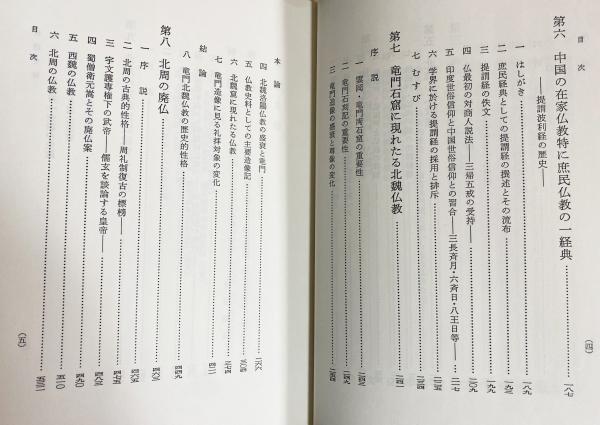 目次
第六 中国の在家仏教特に庶民仏教の一経典……一八七
——提謂波利経の歴史——
一 はしがき……一八九
二 庶民経典としての提謂経の撰述とその流布……一九二
三 提謂経の佚文……一九九
四 仏最初の対商人説法——三帰五戒の受持——……二〇九
五 印度世俗信仰と中国世俗信仰との習合——三長斉月・六斉日・八王日等——……二一七
六 学界に於ける提謂経の採用と排斥……二二五
七 むすび……二三四
第七 竜門石窟に現れたる北魏仏教……二四一
序説
一 雲岡・竜門両石窟の重要性……二四三
二 竜門石刻記の重要性……二四九
三 竜門造像の盛衰と尊像の変化……二五四
(四)
本論
四 北魏洛陽仏教の盛衰と竜門
五 仏教史料としての主要造像記
六 北魏窟に現れたる仏教……三七四
七 竜門造像に見る礼拝対象の変化……四二一
結論
八 竜門北魏仏教の歴史的性格……四四九
第八 北周の廃仏……四六三
一 序説……四六五
二 北周の古典的性格——周礼制復古の標榜——……四七五
三 宇文護専権下の武帝——儒玄を談論する皇帝——……四八三
四 蜀僧衛元嵩とその廃仏案……四九〇
五 西魏の仏教……五一〇
六 北周の仏教
目次
(五)